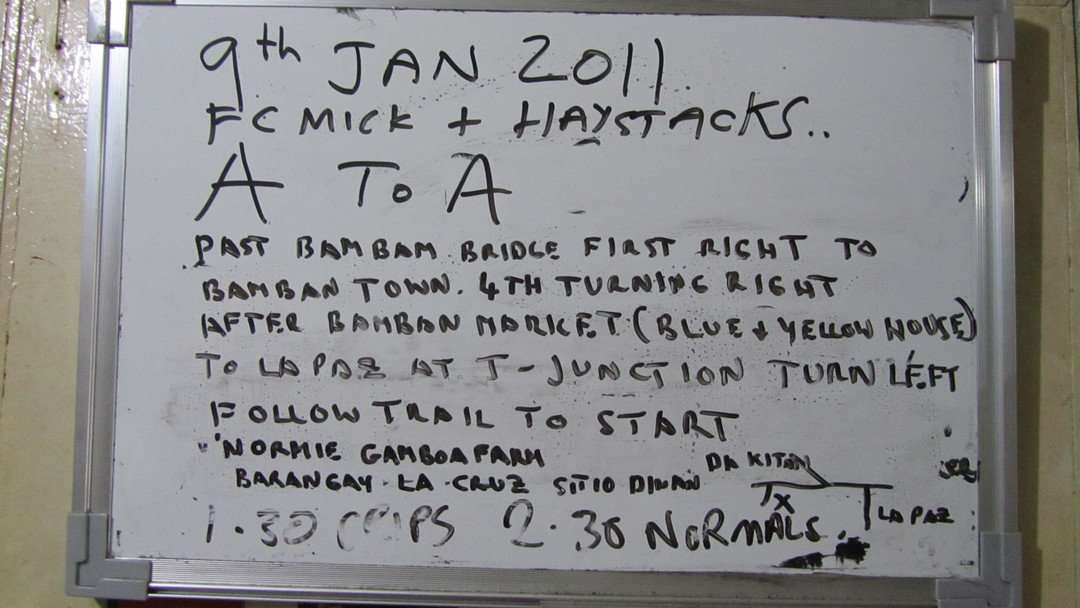 9th JAN 2011
FC MICK + HAYSTACKS..
A TO A
PAST BAMBAM BRIDGE FIRST RIGHT TO
BAMBAN TOWN. 4TH TURNING RIGHT
AFTER BAMBAN MARKET (BLUE + YELLOW HOUSE)
TO LAPAZ AT T-JUNCTION TURN LEFT
FOLLOW TRAIL TO START
"NORMIE GAMBOA FARM
BARANGAY. LA. CRUZ SITIO DIWAN
DA KITAN
X
LA PAZ
1.30 CRIPS 2.30 NORMALS.